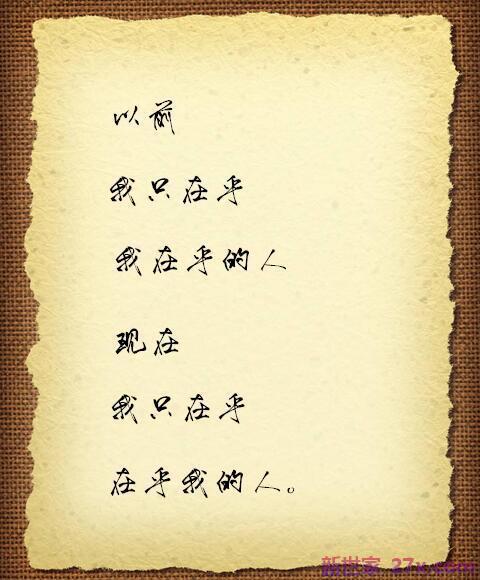 以前
我只在乎
我在乎的人
现在
我只在乎
在乎我的人。
新世家 27x.com